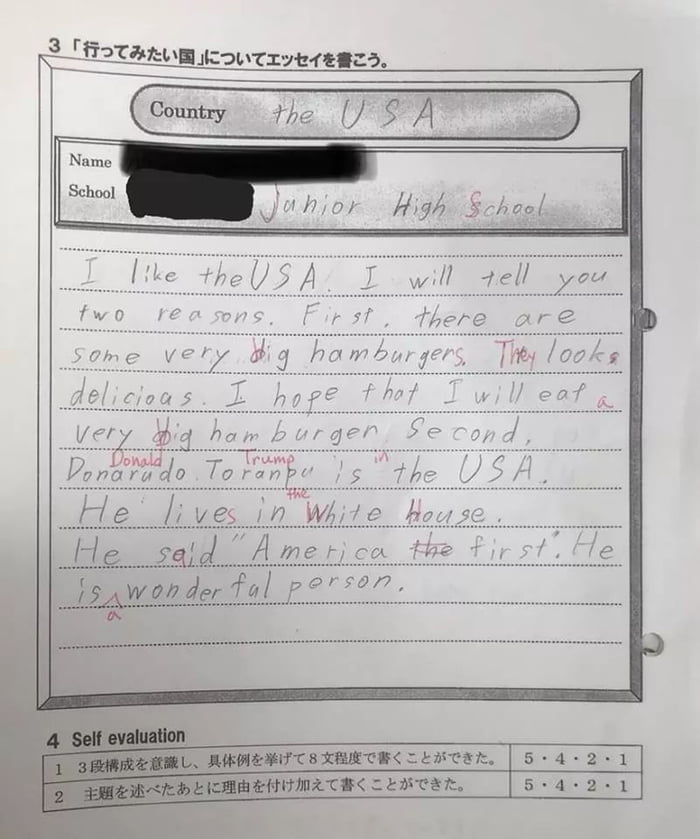 3 「行ってみたい国」についてエッセイを書こう。
Country the USA
Name
School Junior High School
I like the USA. I will tell you
two reasons. First, there are
some very big hamburgers. They looks
delicious. I hope that I will eat a
very big hamburger. Second,
Donald Trump in
Donarudo Toranpu is the USA.
the
He lives in White House.
He said "America the first". He
is wonderful person.
a
4 Self evaluation
1 3段構成を意識し、具体例を挙げて8文程度で書くことができた。 5・4・2・1
2 主題を述べたあとに理由を付け加えて書くことができた。 5・4・2・1